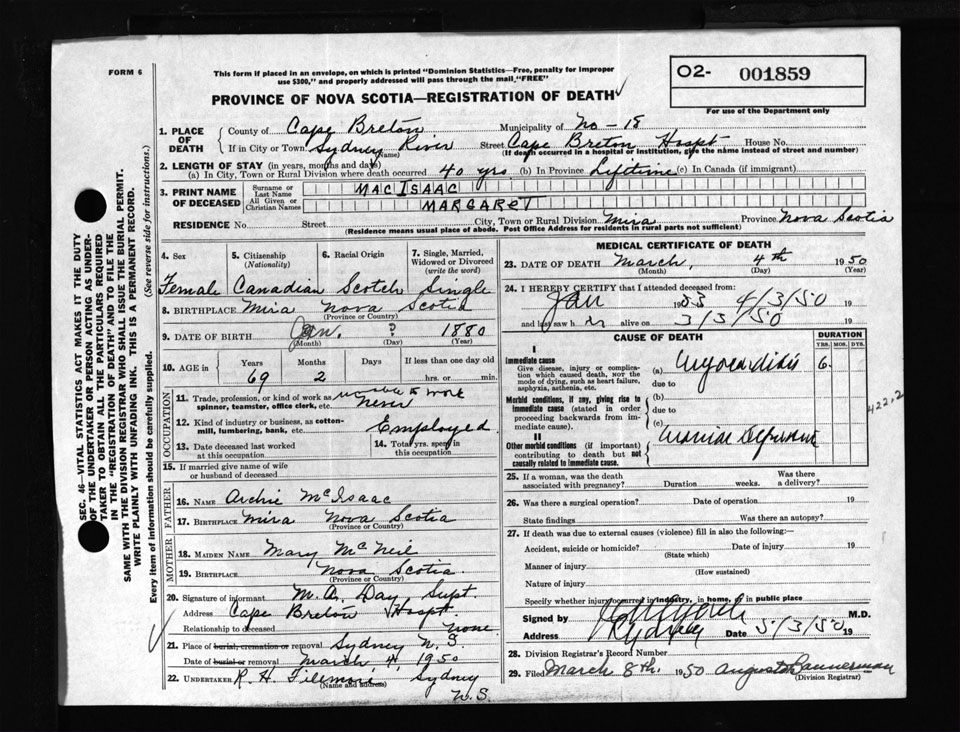 FORM 6
This form if placed in an envelope, on which is printed "Dominion Statistics—Free, penalty for improper
use $300," and properly addressed will pass through the mail "FREE"
O2- 001859
For use of the Department only
PROVINCE OF NOVA SCOTIA—REGISTRATION OF DEATH
1. PLACE OF DEATH
County of Cape Breton Municipality of No-18
If in City or Town Sydney River (Name) Street Cape Breton Hospt House No.
(If death occurred in a hospital or institution, give the name instead of street and number)
2. LENGTH OF STAY (in years, months and days)
(a) In City, Town or Rural Division where death occurred 40 yrs (b) In Province Lifetime (c) In Canada (if immigrant)
3. PRINT NAME OF DECEASED
Surname or Last Name MAC ISAAC
All Given or Christian Names MARGARET
RESIDENCE No. Street City, Town or Rural Division Mira Province Nova Scotia
(Residence means usual place of abode. Post Office Address for residents in rural parts not sufficient)
4. Sex
5. Citizenship (Nationality)
6. Racial Origin
7. Single, Married, Widowed or Divorced (write the word)
Female Canadian Scotch Single
8. BIRTHPLACE Mira Nova Scotia
(Province or Country)
9. DATE OF BIRTH Jan. ? 1880
(Month) (Day) (Year)
10. AGE in Years Months Days If less than one day old
69 2 hrs. or min.
OCCUPATION
11. Trade, profession or kind of work as spinner, teamster, office clerk, etc. to work
never
12. Kind of industry or business, as cotton-mill, lumbering, bank, etc. Employed
13. Date deceased last worked at this occupation
14. Total yrs. spent in this occupation
15. If married give name of wife or husband of deceased
FATHER
16. NAME Archie McIsaac
17. BIRTHPLACE Mira Nova Scotia
(Province or Country)
MOTHER
18. MAIDEN NAME Mary McNeil
19. BIRTHPLACE Nova Scotia.
(Province or Country)
20. Signature of informant M. A. Day Supt.
Address Cape Breton Hospt.
Relationship to deceased none
21. Place of burial, cremation or removal Sydney N. S.
Date of burial or removal March, 4, 1950
22. UNDERTAKER R. H. Fillmore, Sydney
(Name and address)
N.S.
MEDICAL CERTIFICATE OF DEATH
23. DATE OF DEATH March, 4th 1950
(Month) (Day) (Year)
24. I HEREBY CERTIFY that I attended deceased from:
Jan 19 4/3/50 19
and last saw h er alive on 3/3/50 19
CAUSE OF DEATH
DURATION
YRS. MOS. DYS.
I
Immediate cause
Give disease, injury or complication which caused death, NOT the mode of dying, such as heart failure, asphyxia, asthenia, etc.
(a) 6.
due to
Morbid conditions, if any, giving rise to immediate cause (stated in order proceeding backwards from immediate cause).
(b)
due to
(c)
II
Other morbid conditions (if important) contributing to death but not causally related to immediate cause.
422.2
25. If a woman, was the death associated with pregnancy? Duration weeks. Was there a delivery?
26. Was there a surgical operation? Date of operation 19
State findings Was there an autopsy?
27. If death was due to external causes (violence) fill in also the following:
Accident, suicide or homicide? Date of injury 19
(State which)
Manner of injury
(How sustained)
Nature of injury
Specify whether injury occurred in industry, in home, or in public place
Signed by M.D.
Address Sydney Date 5/3/50 19
28. Division Registrar's Record Number
29. Filed March 8th, 1950 Bannerman
(Division Registrar)
SEC. 46—VITAL STATISTICS ACT MAKES IT THE DUTY
OF THE UNDERTAKER OR PERSON ACTING AS UNDERTAKER TO OBTAIN ALL THE PARTICULARS REQUIRED
IN THE "REGISTRATION OF DEATH" AND TO FILE THE
SAME WITH THE DIVISION REGISTRAR WHO SHALL ISSUE THE BURIAL PERMIT.
WRITE PLAINLY WITH UNFADING INK. THIS IS A PERMANENT RECORD.
Every item of information should be carefully supplied. (See reverse side for instructions.)